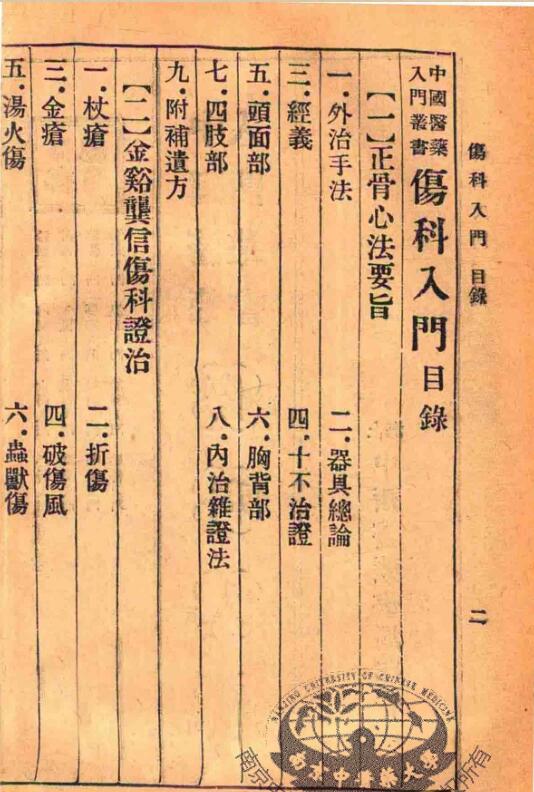 傷科入門 目錄
二
中國醫藥
入門叢書
傷科入門目錄
【一】正骨心法要旨
一.外治手法
二.器具總論
三.經義
四.十不治證
五.頭面部
六.胸背部
七.四肢部
八.內治雜證法
九.附補遺方
【二】金谿龔信傷科證治
一.杖瘡
二.折傷
三.金瘡
四.破傷風
五.湯火傷
六.蟲獸傷
NANJING UNIVERSITY OF CHINESE MEDICINE
南京中醫藥大學
南京
所有